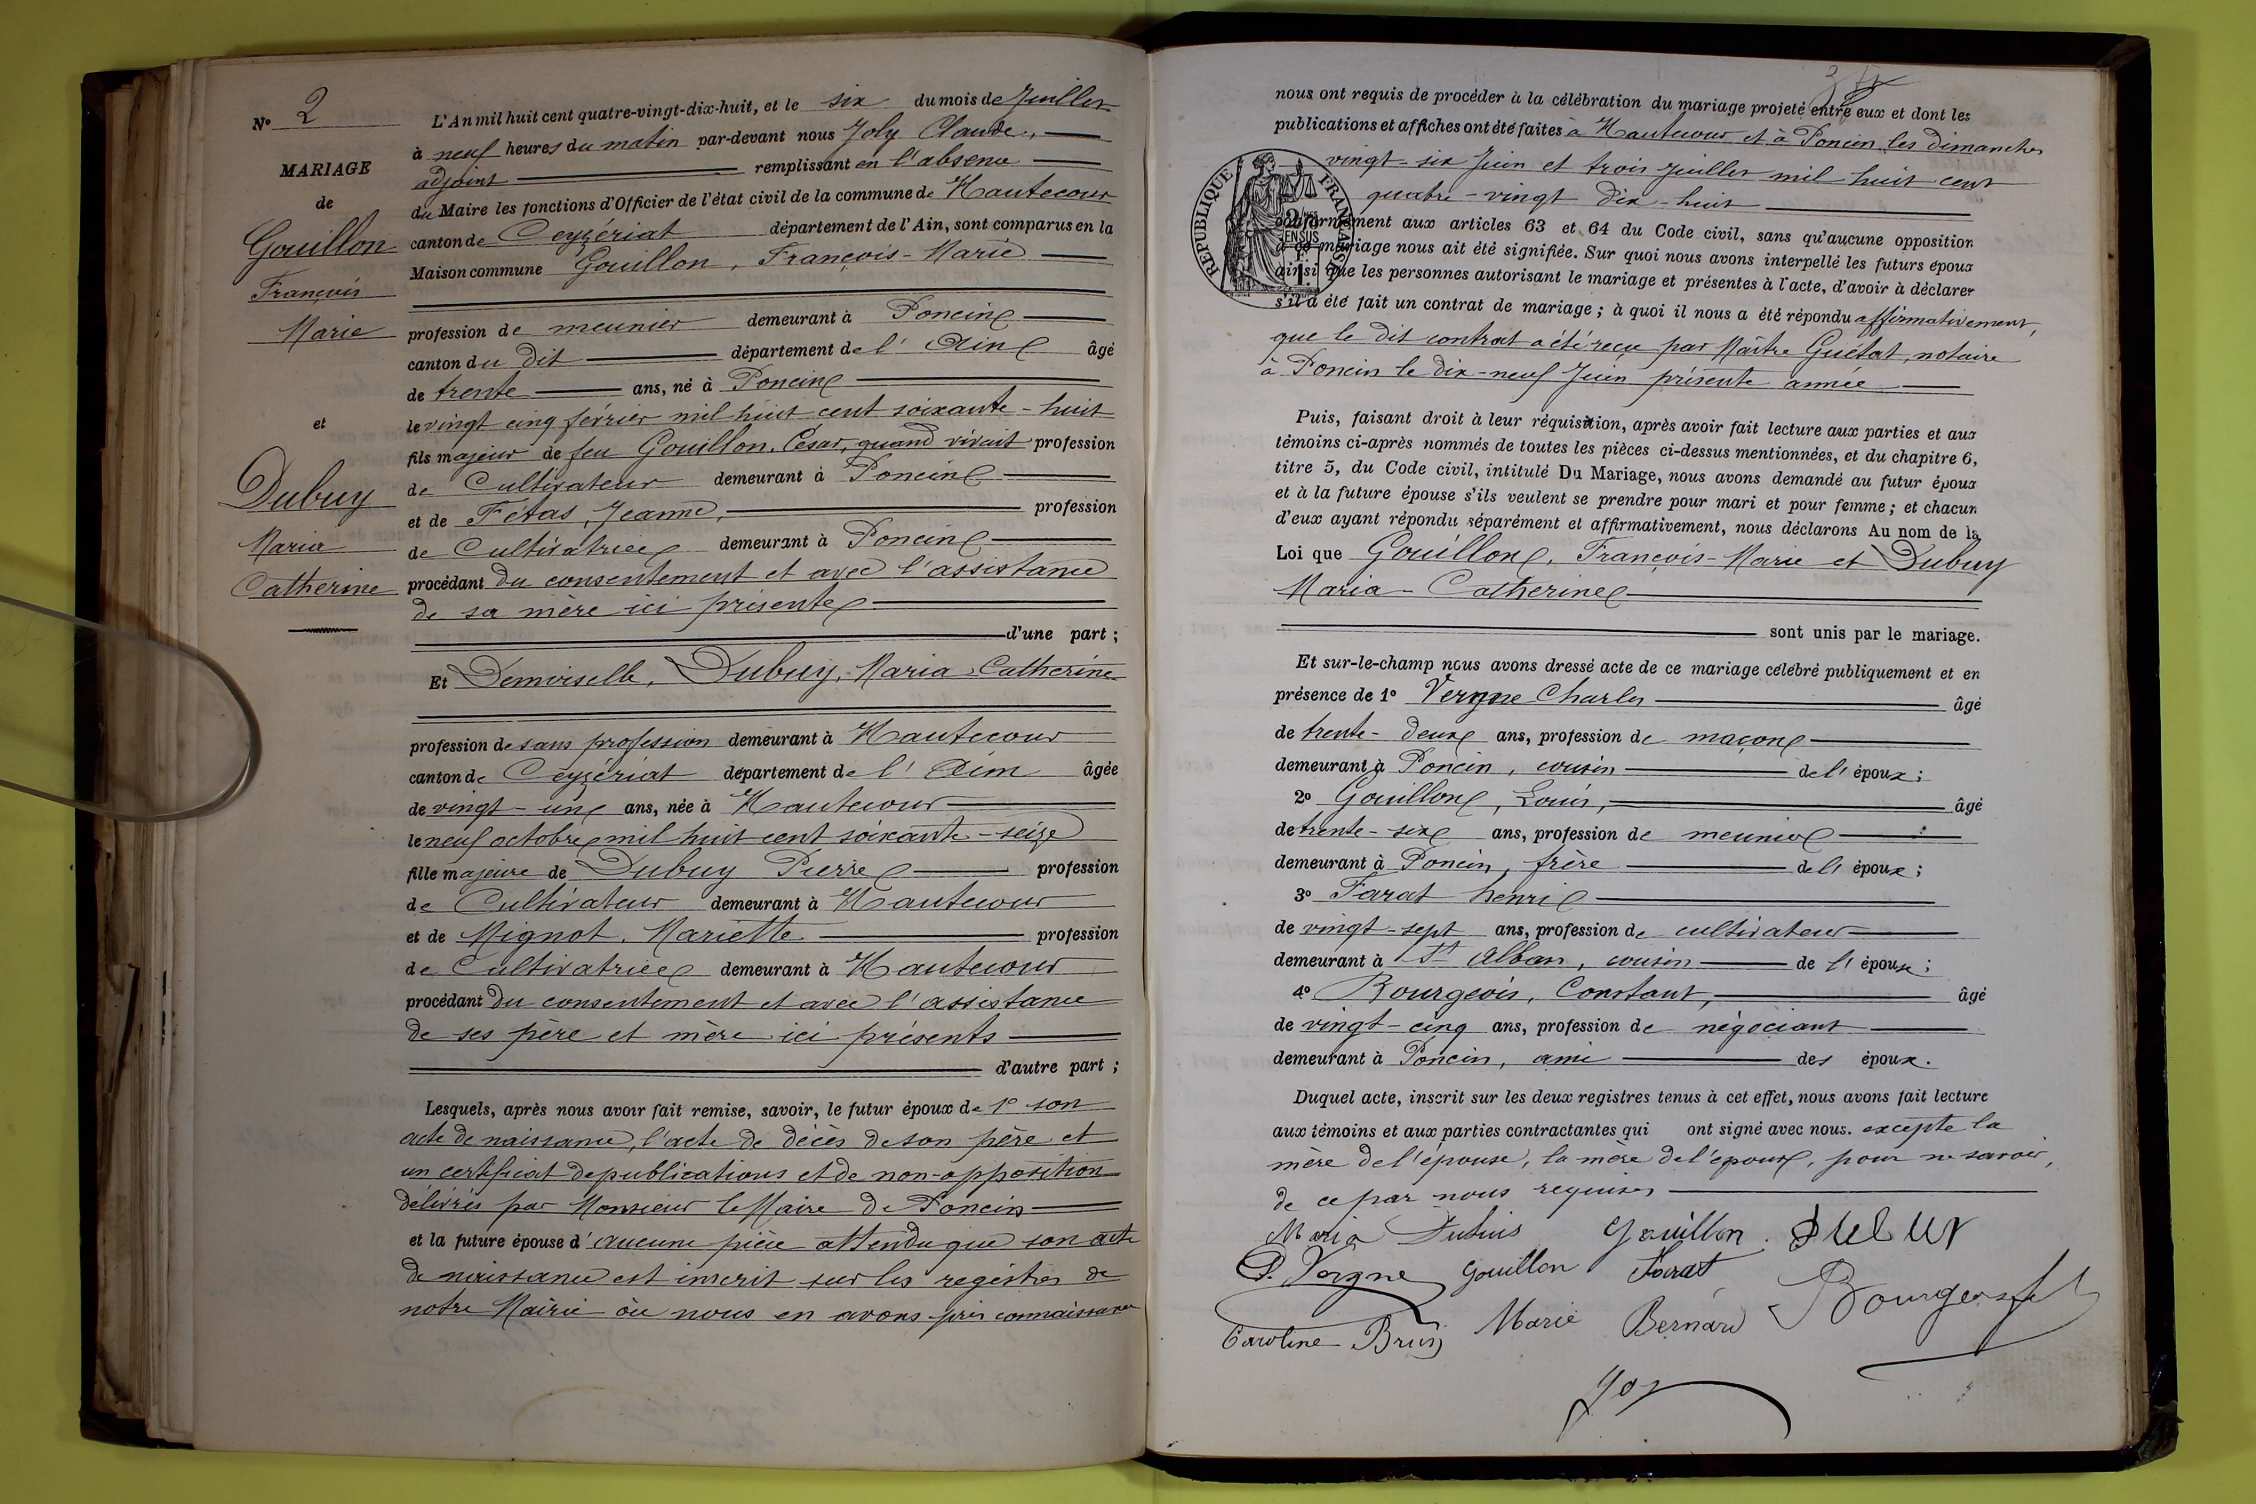 N° 2
MARIAGE
de
Gouillon
François
Marie
et
Dubuy
Maria
Catherine
L'An mil huit cent quatre-vingt-dix-huit, et le six du mois de Juillet
à neuf heures du matin par-devant nous Joly Claude,
adjoint remplissant en l'absence
du Maire les fonctions d'Officier de l'état civil de la commune de Hautecour
canton de Ceyzériat département de l'Ain, sont comparus en la
Maison commune Gouillon, François-Marie
profession de meunier demeurant à Poncin
canton du dit département de l'Ain âgé
de trente ans, né à Poncin
le vingt cinq février mil huit cent soixante-huit
fils majeur de feu Gouillon, César, quand vivait profession
de Cultivateur demeurant à Poncin
et de Fétas, Jeanne, profession
de Cultivatrice demeurant à Poncin
procédant du consentement et avec l'assistance
de sa mère ici présente
d'une part ;
Et Demoiselle, Dubuy, Maria-Catherine
profession de sans profession demeurant à Hautecour
canton de Ceyzériat département de l'Ain âgée
de vingt-un ans, née à Hautecour
le neuf octobre mil huit cent soixante-seize
fille majeure de Dubuy Pierre profession
de Cultivateur demeurant à Hautecour
et de Mignot, Mariette profession
de Cultivatrice demeurant à Hautecour
procédant du consentement et avec l'assistance
de ses père et mère ici présents
d'autre part ;
Lesquels, après nous avoir fait remise, savoir, le futur époux de 1° son
acte de naissance, l'acte de décès de son père et
un certificat de publications et de non-opposition
délivrés par Monsieur le Maire de Poncin
et la future épouse d'aucune pièce attendu que son acte
de naissance est inscrit sur les registres de
notre Mairie où nous en avons pris connaissance
nous ont requis de procéder à la célébration du mariage projeté entre eux et dont les
publications et affiches ont été faites à Hautecour et à Poncin les dimanches
vingt-six Juin et trois juillet mil huit cent
quatre-vingt dix-huit
RÉPUBLIQUE FRANÇAISE
conformément aux articles 63 et 64 du Code civil, sans qu'aucune opposition
à ce mariage nous ait été signifiée. Sur quoi nous avons interpellé les futurs époux
ainsi que les personnes autorisant le mariage et présentes à l'acte, d'avoir à déclarer
s'il a été fait un contrat de mariage ; à quoi il nous a été répondu affirmativement,
que le dit contrat a été reçu par Maître Guétat, notaire
à Poncin le dix-neuf Juin présente année
Puis, faisant droit à leur réquisition, après avoir fait lecture aux parties et aux
témoins ci-après nommés de toutes les pièces ci-dessus mentionnées, et du chapitre 6,
titre 5, du Code civil, intitulé Du Mariage, nous avons demandé au futur époux
et à la future épouse s'ils veulent se prendre pour mari et pour femme ; et chacun
d'eux ayant répondu séparément et affirmativement, nous déclarons Au nom de la
Loi que Gouillon, François-Marie et Dubuy
Maria-Catherine
sont unis par le mariage.
Et sur-le-champ nous avons dressé acte de ce mariage célébré publiquement et en
présence de 1° Vergne Charles âgé
de trente-deux ans, profession de maçon
demeurant à Poncin, cousin de l'époux ;
2° Gouillon, Louis, âgé
de trente-six ans, profession de meunier
demeurant à Poncin, frère de l'époux ;
3° Farat henri
de vingt-sept ans, profession de cultivateur
demeurant à St Alban, cousin de l'épouse ;
4° Bourgeois, Constant, âgé
de vingt-cinq ans, profession de négociant
demeurant à Poncin, ami des époux.
Duquel acte, inscrit sur les deux registres tenus à cet effet, nous avons fait lecture
aux témoins et aux parties contractantes qui ont signé avec nous. excepte la
mère de l'épouse, la mère de l'époux, pour ne savoir,
de ce par nous requises
Maria Dubuis Gouillon
Vergne Gouillon Farat Bourgeois
Caroline Brun Marie Bernard
Joly